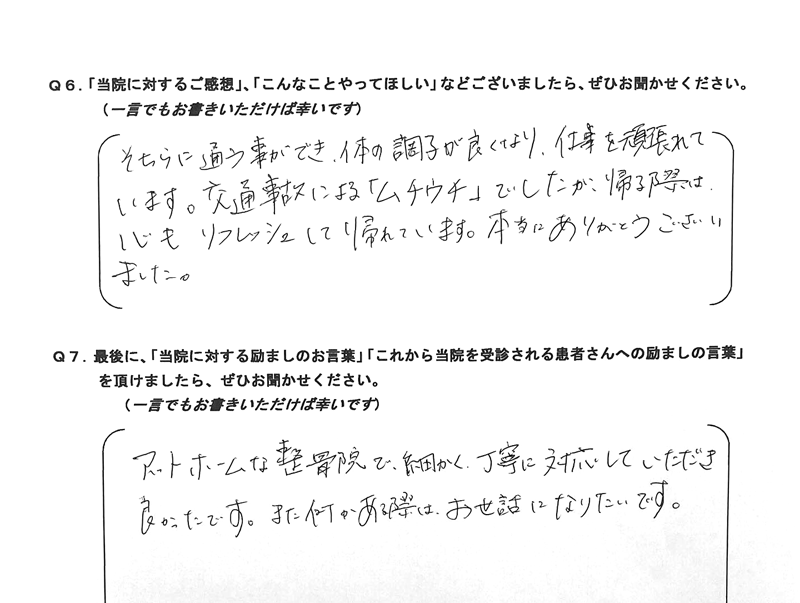 Q6.「当院に対するご感想」、「こんなことやってほしい」などございましたら、ぜひお聞かせください。
(一言でもお書きいただけば幸いです)
そちらに通う事ができ、体の調子が良くなり、仕事を頑張れて
います。交通事故による「ムチウチ」でしたが、帰る際は、
心も リフレッシュして帰れています。本当にありがとうございい
ました。
Q7. 最後に、「当院に対する励ましのお言葉」「これから当院を受診される患者さんへの励ましの言葉」
を頂けましたら、ぜひお聞かせください。
(一言でもお書きいただけば幸いです)
アットホームな整骨院で、細かく、丁寧に対応していただき
良かったです。また何かある際は、お世話になりたいです。